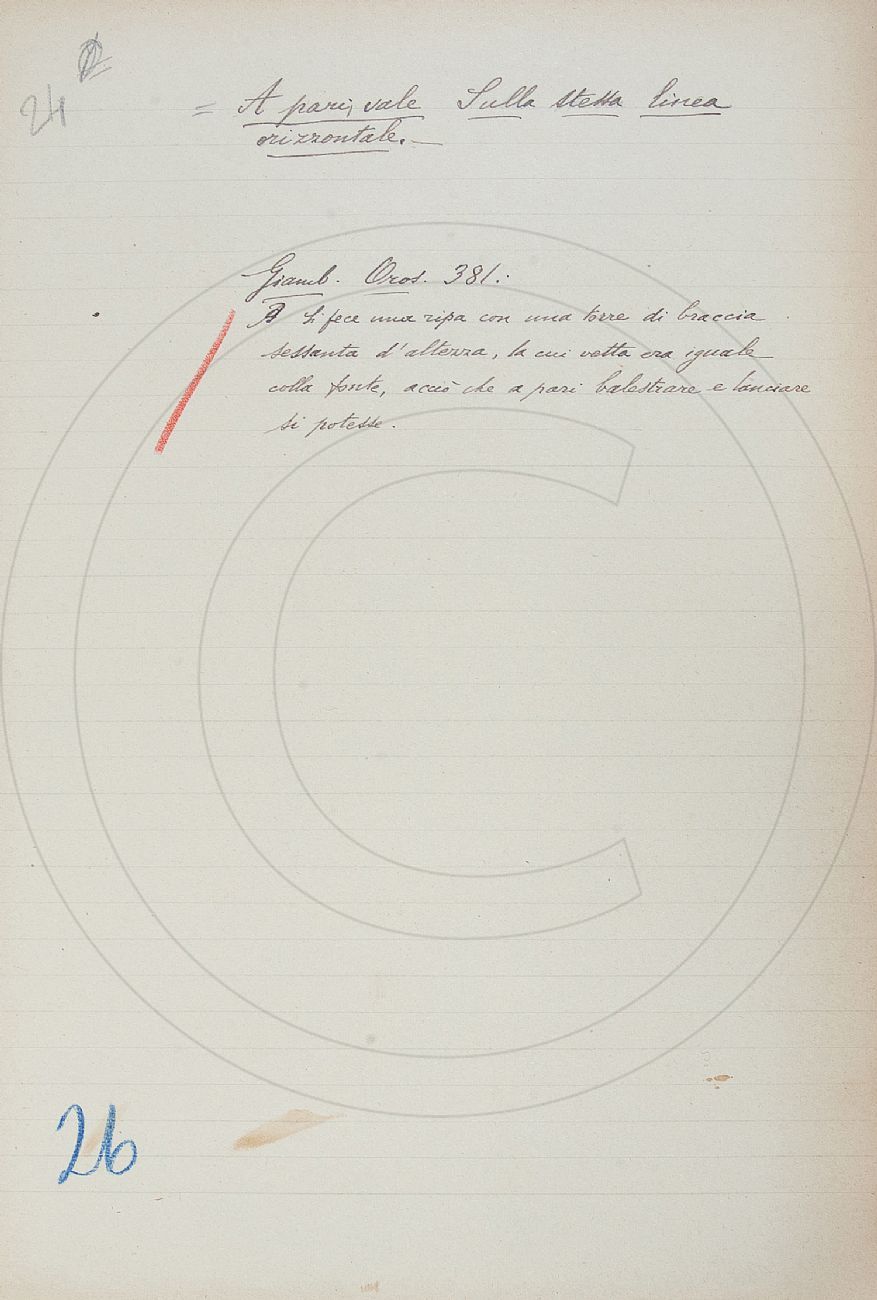 24
= A pari, vale Sulla stessa linea
orizzontale. —
Giamb. Oros. 381:
Si fece una ripa con una torre di braccia
sessanta d'altezza, la cui vetta era iguale
colla fonte, acciò che a pari balestrare e lanciare
si potesse.
26